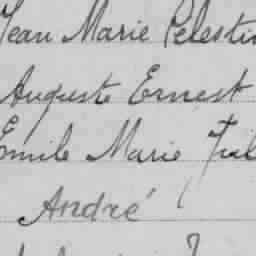 Jean Marie Pelestin
Auguste Ernest
Emile Marie
André